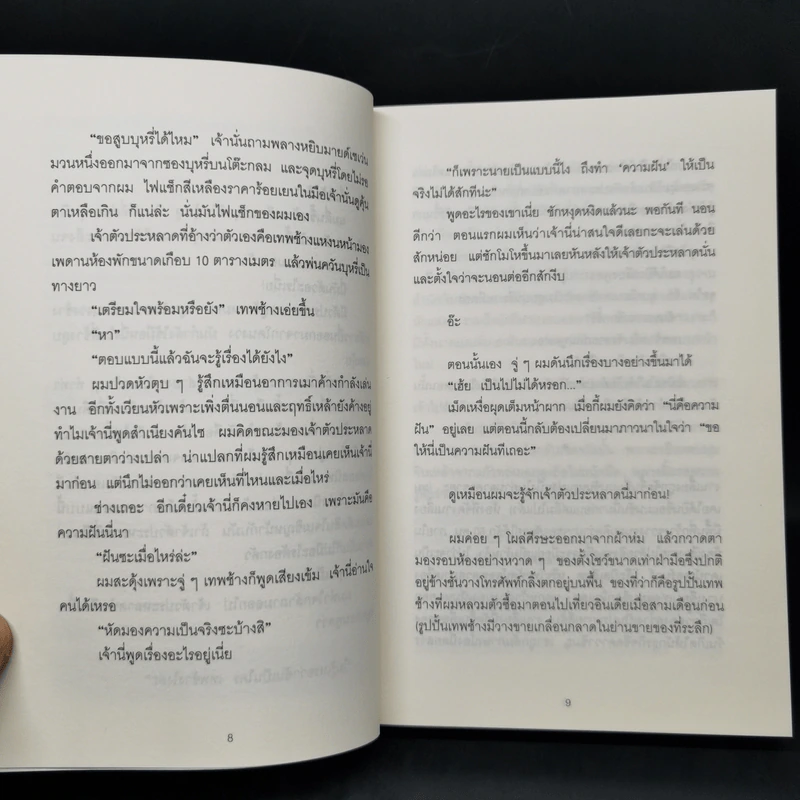 “ขอสูบบุหรี่ได้ไหม” เจ้านั่นถามพลางหยิบมายด์เซเว่น
มวนหนึ่งออกมาจากซองบุหรี่บนโต๊ะกลม และจุดบุหรี่โดยไม่รอ
คำตอบจากผม ไฟแช็กสีเหลืองราคาร้อยเยนในมือเจ้านั่นดูคุ้น
ตาเหลือเกิน ก็แน่ล่ะ นั่นมันไฟแช็กของผมเอง
เจ้าตัวประหลาดที่อ้างว่าตัวเองคือเทพช้างแหงนหน้ามอง
เพดานห้องพักขนาดเกือบ 10 ตารางเมตร แล้วพ่นควันบุหรี่เป็น
ทางยาว
“เตรียมใจพร้อมหรือยัง” เทพช้างเอ่ยขึ้น
“หา”
“ตอบแบบนี้แล้วฉันจะรู้เรื่องได้ยังไง”
ผมปวดหัวตุบ ๆ รู้สึกเหมือนอาการเมาค้างกำลังเล่น
งาน อีกทั้งเวียนหัวเพราะเพิ่งตื่นนอนและฤทธิ์เหล้ายังค้างอยู่
ทำไมเจ้านี่พูดสำเนียงคันไซ ผมคิดขณะมองเจ้าตัวประหลาด
ด้วยสายตาว่างเปล่า น่าแปลกที่ผมรู้สึกเหมือนเคยเห็นเจ้านี่
มาก่อน แต่นึกไม่ออกว่าเคยเห็นที่ไหนและเมื่อไหร่
ช่างเถอะ อีกเดี๋ยวเจ้านี่ก็คงหายไปเอง เพราะมันคือ
ความฝันนี่นา
“ฝันซะเมื่อไหร่ล่ะ”
ผมสะดุ้งเพราะจู่ ๆ เทพช้างก็พูดเสียงเข้ม เจ้านี่อ่านใจ
คนได้เหรอ
“หัดมองความเป็นจริงซะบ้างสิ”
เจ้านี่พูดเรื่องอะไรอยู่เนี่ย
8
“ก็เพราะนายเป็นแบบนี้ไง ถึงทำ ‘ความฝัน’ ให้เป็น
จริงไม่ได้สักทีน่ะ”
พูดอะไรของเขาเนี่ย ชักหงุดหงิดแล้วนะ พอกันที นอน
ดีกว่า ตอนแรกผมเห็นว่าเจ้านี่น่าสนใจดีเลยกะจะเล่นด้วย
สักหน่อย แต่ชักโมโหขึ้นมาเลยหันหลังให้เจ้าตัวประหลาดนั่น
และตั้งใจว่าจะนอนต่ออีกสักงีบ
อ๊ะ
ตอนนั้นเอง จู่ ๆ ผมดันนึกเรื่องบางอย่างขึ้นมาได้
“เฮ้ย เป็นไปไม่ได้หรอก...”
เม็ดเหงื่อผุดเต็มหน้าผาก เมื่อกี้ผมยังคิดว่า “นี่คือความ
ฝัน” อยู่เลย แต่ตอนนี้กลับต้องเปลี่ยนมาภาวนาในใจว่า “ขอ
ให้นี่เป็นความฝันทีเถอะ”
ดูเหมือนผมจะรู้จักเจ้าตัวประหลาดนี่มาก่อน!
ผมค่อย ๆ โผล่ศีรษะออกมาจากผ้าห่ม แล้วกวาดตา
มองรอบห้องอย่างหวาด ๆ ของตั้งโชว์ขนาดเท่าฝ่ามือซึ่งปกติ
อยู่ข้างชั้นวางโทรศัพท์กลิ้งตกอยู่บนพื้น ของที่ว่าก็คือรูปปั้นเทพ
ช้างที่ผมหลวมตัวซื้อมาตอนไปเที่ยวอินเดียเมื่อสามเดือนก่อน
(รูปปั้นเทพช้างมีวางขายเกลื่อนกลาดในย่านขายของที่ระลึก)
9